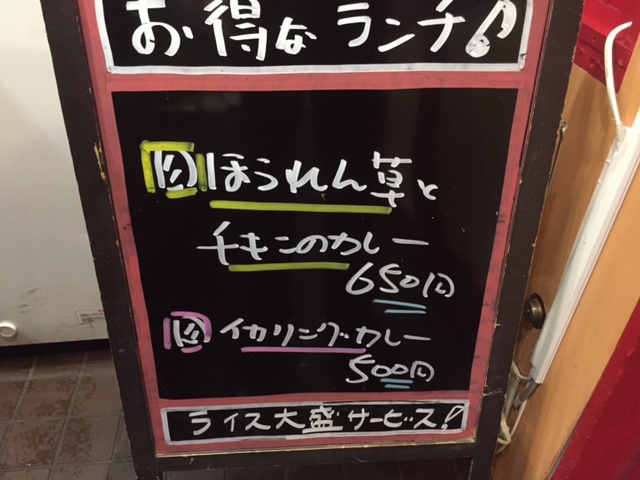 お得なランチ♪
ほうれん草と
チキンのカレー
650円
イカリングカレー
500円
ライス大盛サービス!